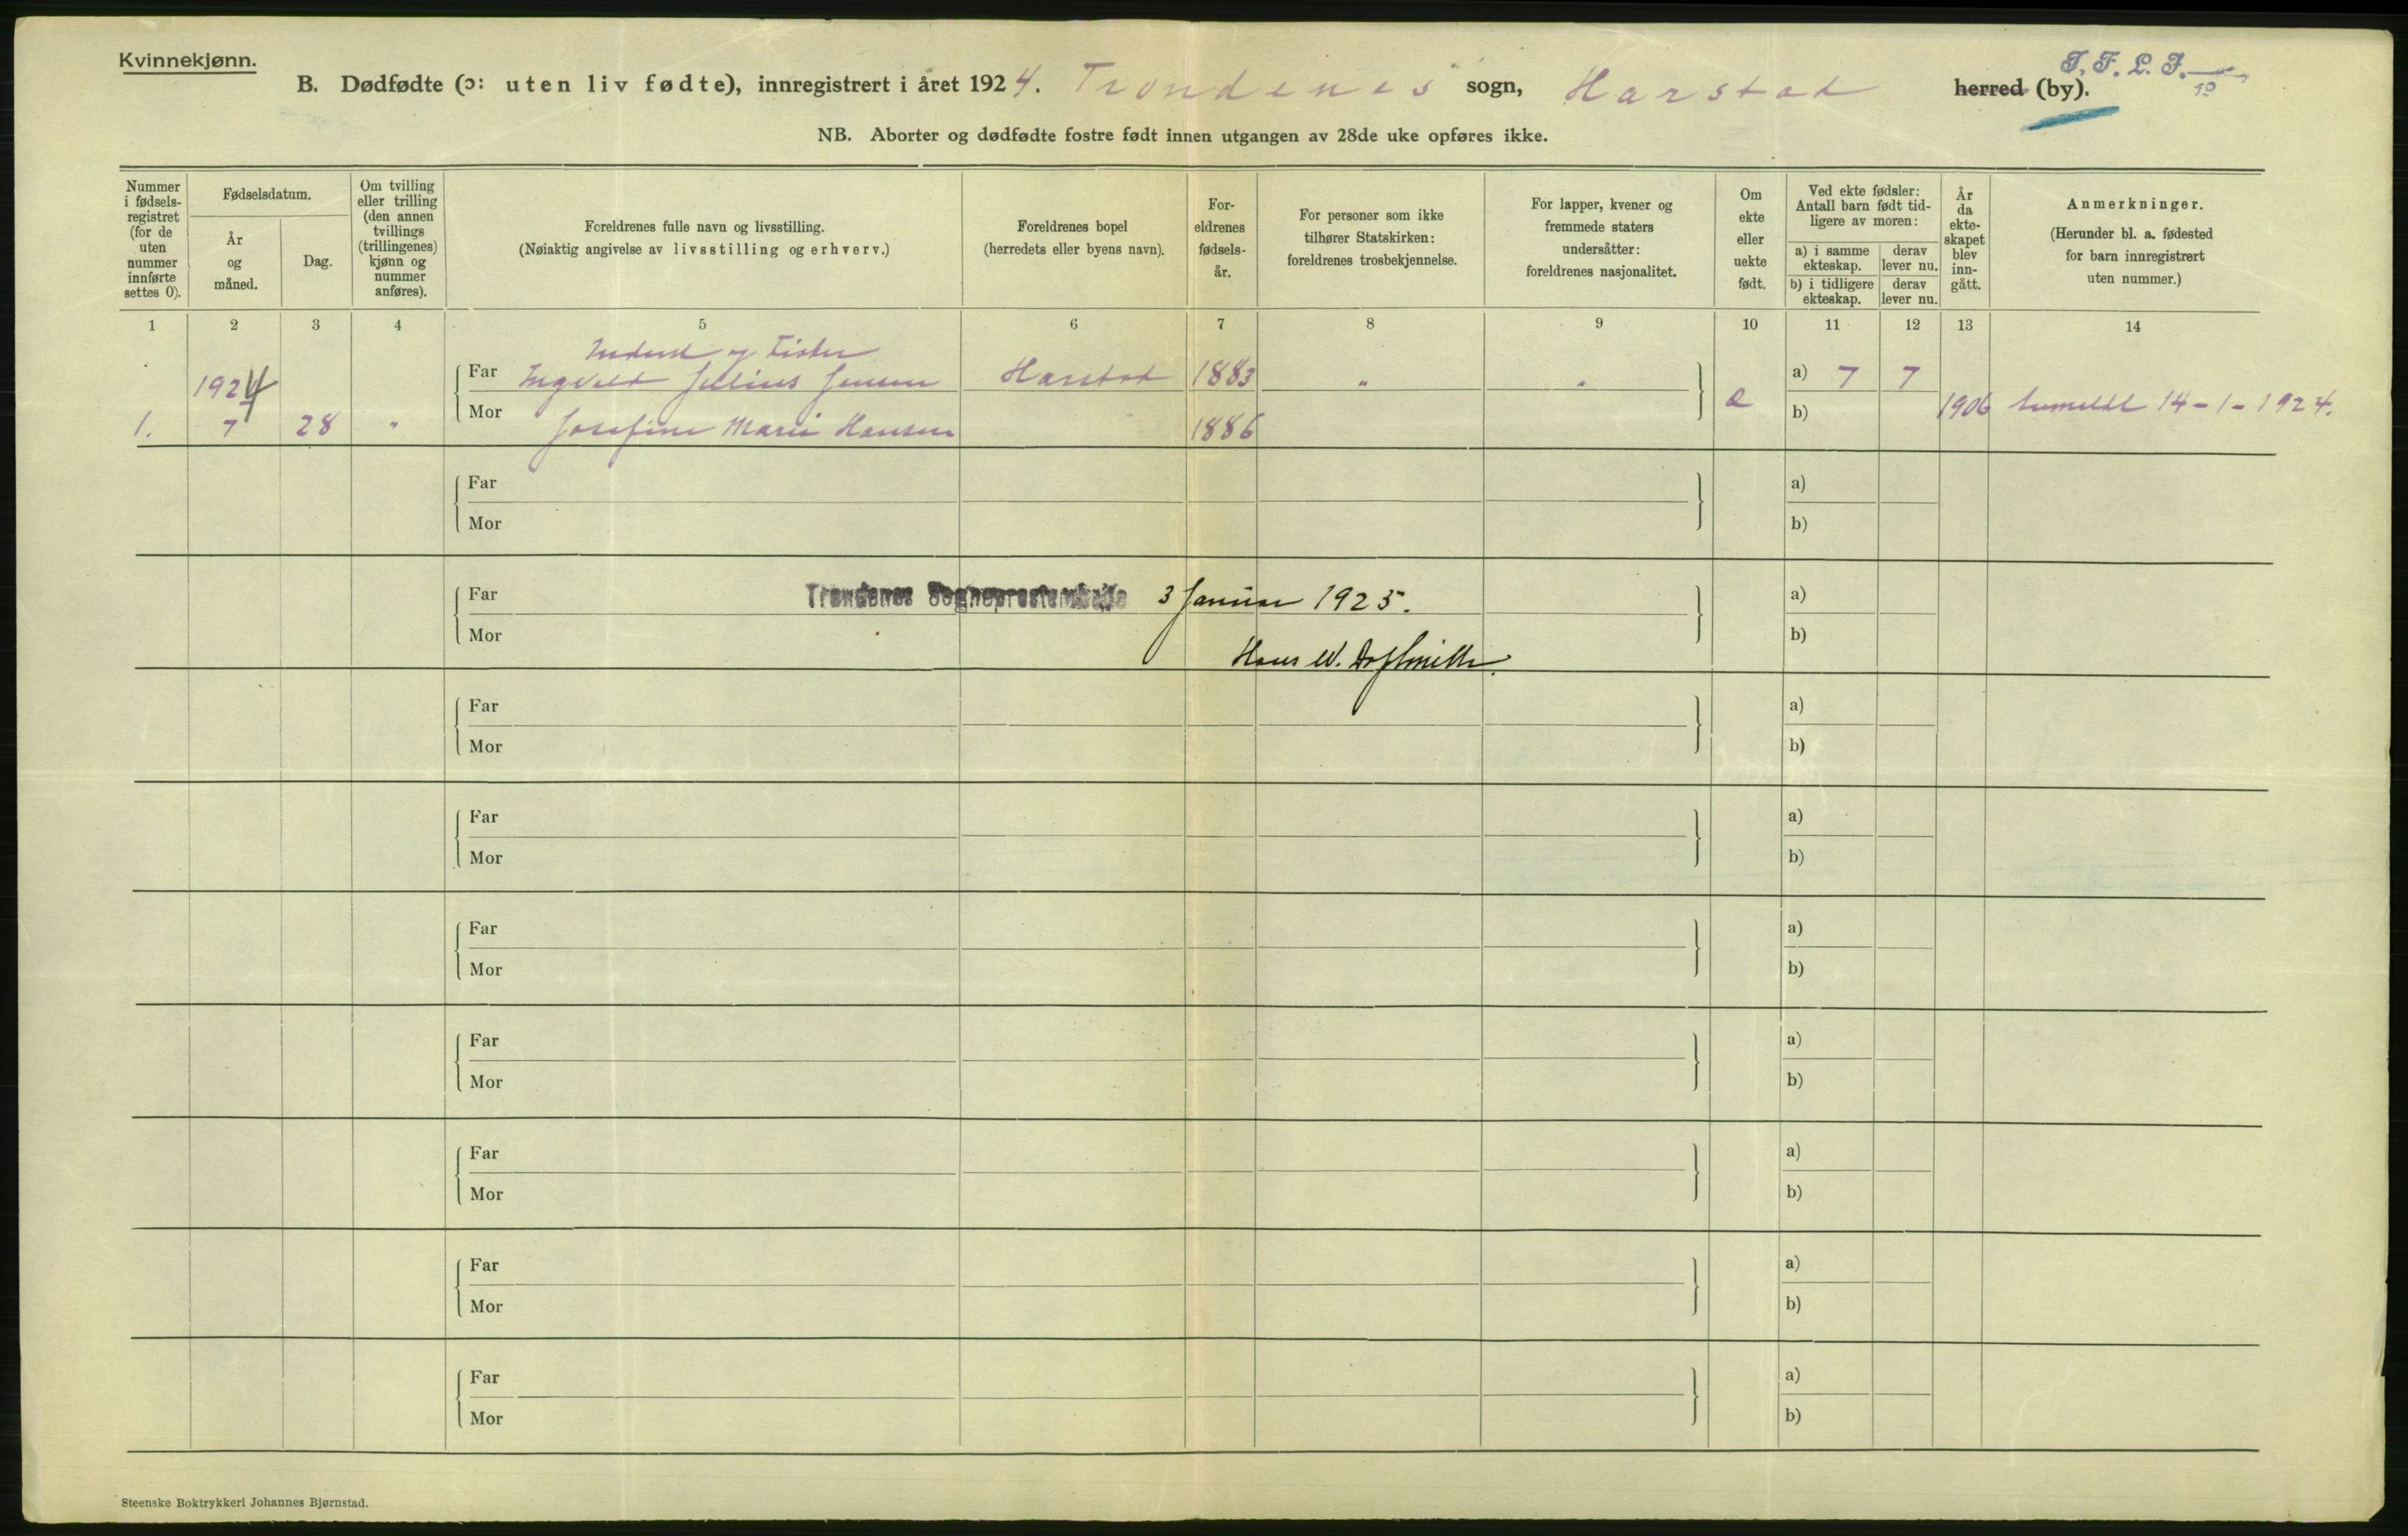 Kvinnekjønn.
T. F. L. J.
B. Dødfødte (ɔ: uten liv fødte), innregistrert i året 1924. Trondenes sogn, Harstad herred (by).
NB. Aborter og dødfødte fostre født innen utgangen av 28de uke opføres ikke.
Nummer i fødsels-registret (for de uten nummer innførte settes 0).
Fødselsdatum.
År og måned.
Dag.
Om tvilling eller trilling (den annen tvillings (trillingenes) kjønn og nummer anføres).
Foreldrenes fulle navn og livsstilling.
(Nøiaktig angivelse av livsstilling og erhverv.)
Foreldrenes bopel
(herredets eller byens navn).
For-eldrenes fødsels-år.
For personer som ikke tilhører Statskirken: foreldrenes trosbekjennelse.
For lapper, kvener og fremmede staters undersåtter: foreldrenes nasjonalitet.
Om ekte eller uekte født.
Ved ekte fødsler: Antall barn født tid-ligere av moren:
a) i samme ekteskap.
derav lever nu.
b) i tidligere ekteskap.
derav lever nu.
År da ekte-skapet blev inn-gått.
Anmerkninger.
(Herunder bl. a. fødested for barn innregistrert uten nummer.)
1 2 3 4 5 6 7 8 9 10 11 12 13 14
og Fisker
1924 Far Ingvald Julius Jensen Harstad 1883 " " a) 7 7
1. 7 28 " Mor Josefine Marie Hansen 1886 b) 1906 Anmeldt 14-1-1924.
Far a)
Mor b)
Far Trondenes Sogneprestembede 3 Januar 1925. a)
Mor Hans W. b)
Far a)
Mor b)
Far a)
Mor b)
Far a)
Mor b)
Far a)
Mor b)
Far a)
Mor b)
Far a)
Mor b)
Far a)
Mor b)
Steenske Boktrykkeri Johannes Bjørnstad.